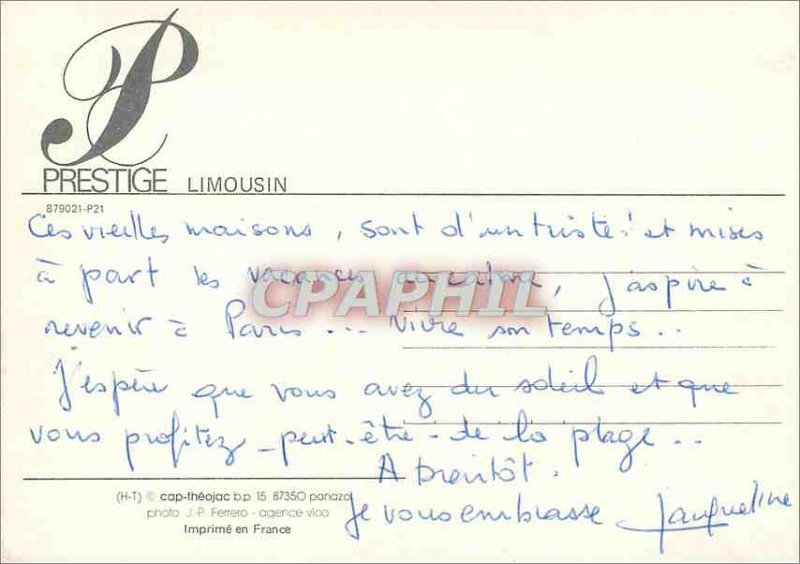 PRESTIGE LIMOUSIN
879021-P21
Ces vieilles maisons, sont d'un triste! et mises
à part les vacances , j'aspire à
revenir à Paris... vivre son temps..
J'espère que vous avez du soleil et que
vous profitez - peut-être - de la plage...
A bientôt.
Je vous embrasse Jacqueline
CPAPHIL
(H-T) © cap-théojac b.p. 15 87350 panazol
photo J.-P. Ferrero - agence vloo
Imprimé en France